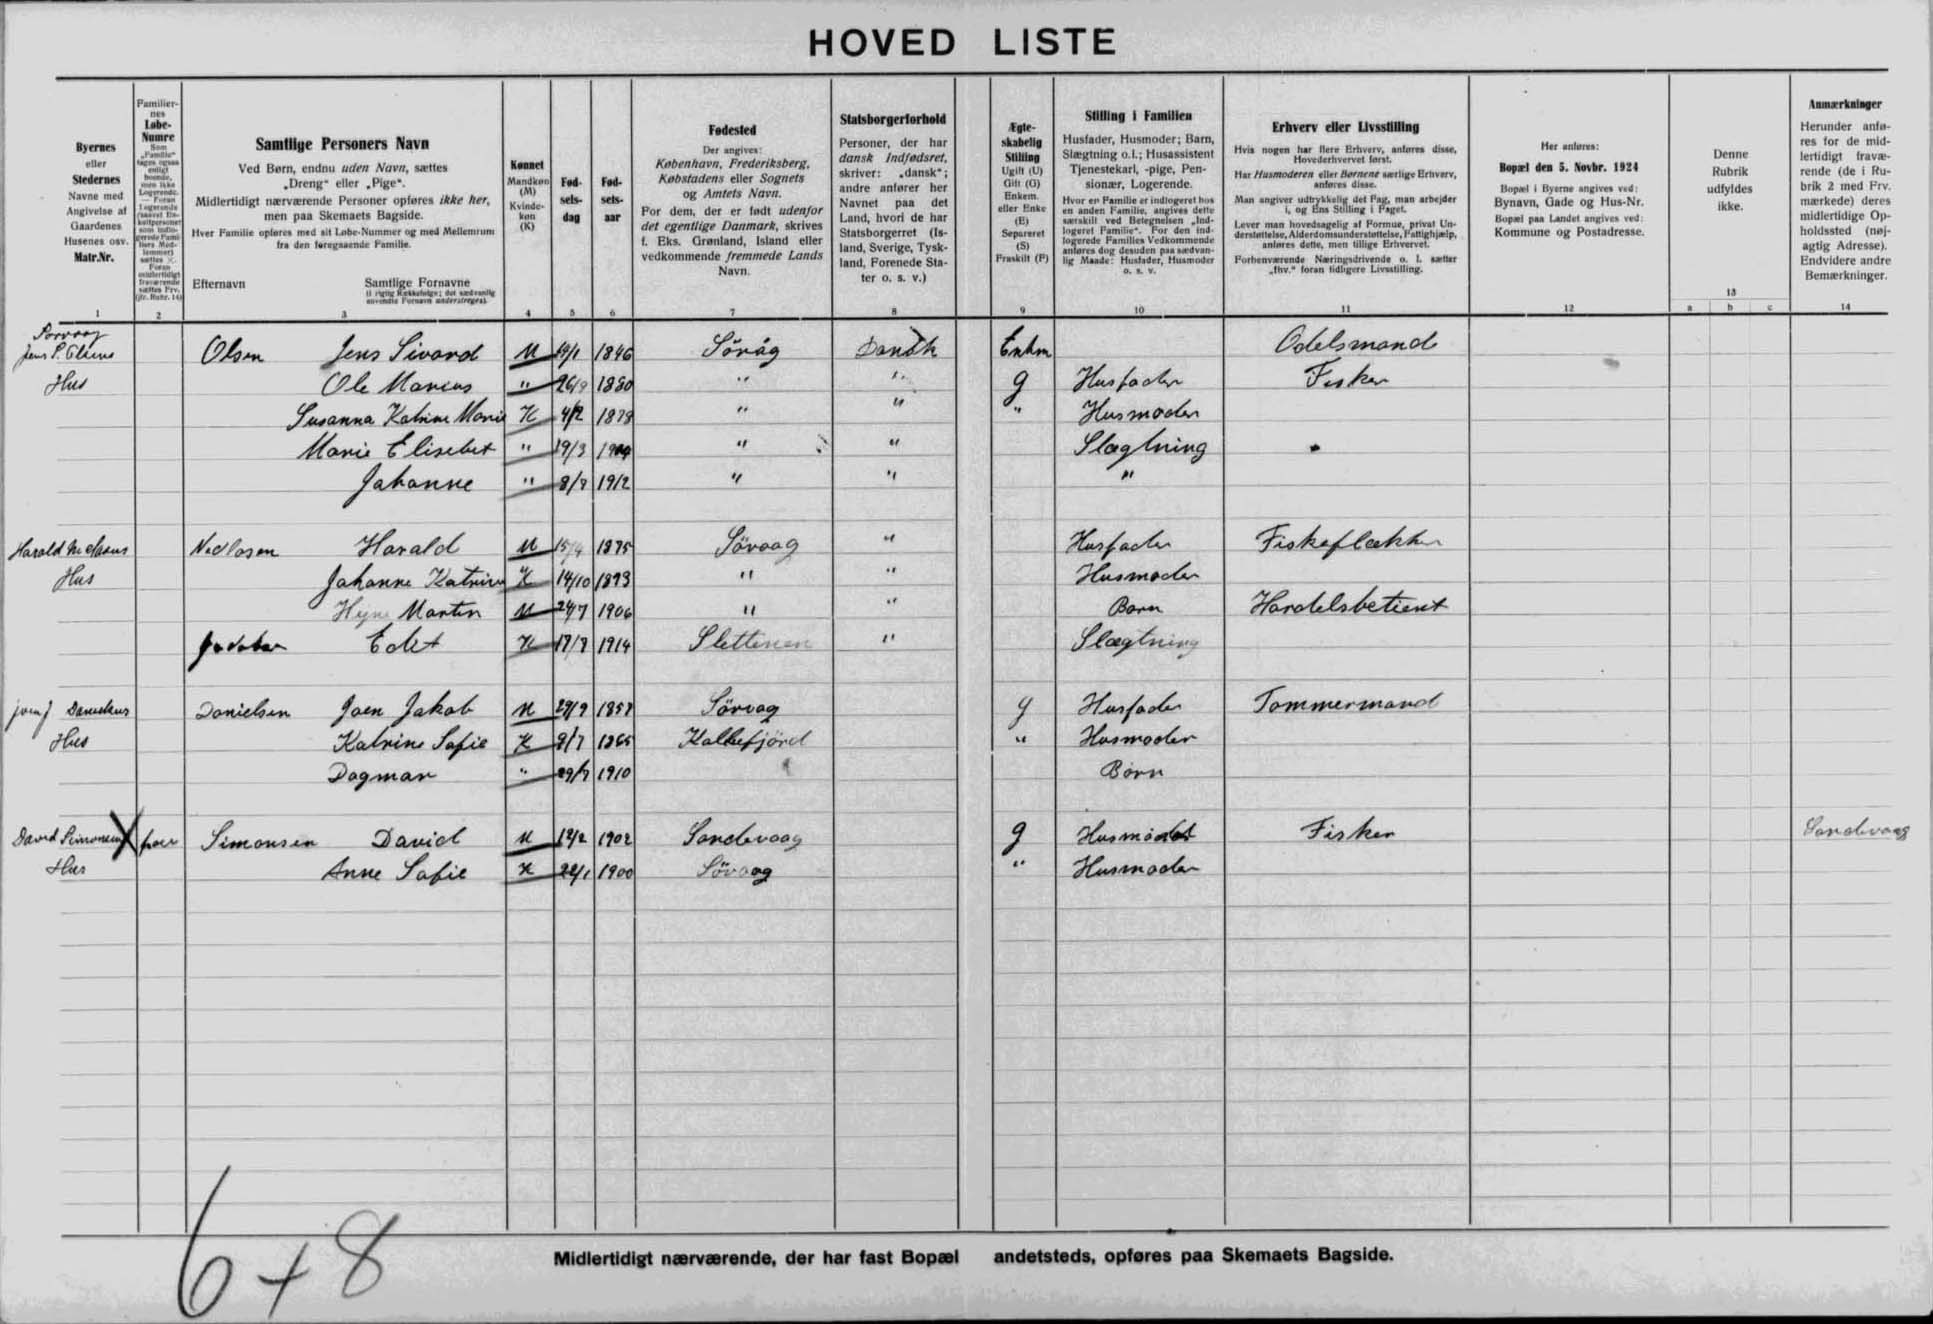 HOVED LISTE
Byernes
eller
Stedernes
Navne med
Angivelse af
Gaardenes
Husenes osv.
Matr.Nr.
1
Familier-
nes
Løbe-
Numre
2
Samtlige Personers Navn
Ved Børn, endnu uden Navn, sættes
„Dreng“ eller „Pige“.
Midlertidigt nærværende Personer opføres ikke her,
men paa Skemaets Bagside.
Hver Familie opføres med sit Løbe-Nummer og med Mellemrum
fra den foregaaende Familie.
Efternavn
Samtlige Fornavne
(i rigtig Rækkefølge; det sædvanlig
anvendte Fornavn understreges).
3
Kønnet
Mandkøn
(M)
Kvinde-
køn
(K)
4
Fød-
sels-
dag
5
Fød-
sels-
aar
6
Fødested
Der angives:
København, Frederiksberg,
Købstadens eller Sognets
og Amtets Navn.
For dem, der er født udenfor
det egentlige Danmark, skrives
f. Eks. Grønland, Island eller
vedkommende fremmede Lands
Navn.
7
Statsborgerforhold
Personer, der har
dansk Indfødsret,
skriver: „dansk“;
andre anfører her
Navnet paa det
Land, hvori de har
Statsborgerret (Is-
land, Sverige, Tysk-
land, Forenede Sta-
ter o. s. v.)
8
Ægte-
skabelig
Stilling
Ugift (U)
Gift (G)
Enkem.
eller Enke
(E)
Separeret
(S)
Fraskilt (F)
9
Stilling i Familien
Husfader, Husmoder; Barn,
Slægtning o.l.; Husassistent
Tjenestekarl, -pige, Pen-
sionær, Logerende.
Hvor en Familie er indlogeret hos
en anden Familie, angives dette
særskilt ved Betegnelsen „Ind-
logeret Familie“. For den ind-
logerede Families Vedkommende
anføres dog desuden paa sædvan-
lig Maade: Husfader, Husmoder
o. s. v.
10
Erhverv eller Livsstilling
Hvis nogen har flere Erhverv, anføres disse,
Hovederhvervet først.
Har Husmoderen eller Børnene særlige Erhverv,
anføres disse.
Man angiver udtrykkelig det Fag, man arbejder
i, og Ens Stilling i Faget.
Lever man hovedsagelig af Formue, privat Un-
derstøttelse, Alderdomsunderstøttelse, Fattighjælp,
anføres dette, men tillige Erhvervet.
Forhenværende Næringsdrivende o. l. sætter
„fhv.“ foran tidligere Livsstilling.
11
Her anføres:
Bopæl den 5. Novbr. 1924
Bopæl i Byerne angives ved:
Bynavn, Gade og Hus-Nr.
Bopæl paa Landet angives ved:
Kommune og Postadresse.
12
Denne
Rubrik
udfyldes
ikke.
13
a b c
Anmærkninger
Herunder anfø-
res for de mid-
lertidigt fravæ-
rende (de i Ru-
brik 2 med Frv.
mærkede) deres
midlertidige Op-
holdssted (nøj-
agtig Adresse).
Endvidere andre
Bemærkninger.
14
Sorvaag
Jens S. Olsens Olsen Jens Sivard M 19/1 1846 Söråg Dansk Enkm Odelsmand
Hus Ole Marcus " 26/9 1880 " " g Husfader Fisker
Susanna Katrine Marie K 4/2 1878 " " " Husmoder
Marie Elisebet " 19/3 " " Slægtning
Johanne " 8/8 1912 " " "
Harald Nedlasen Harald M 15/4 1875 Sövaag " Husfader Fiskeflækker
Hus Johanne Katrine K 14/10 1873 " " Husmoder
Martin M 24/7 1906 " " Barn Handelsbetient
Edit K 17/8 1914 Slettenen " Slægtning
Joen J Danielsens Danielsen Joen Jakob M 29/9 1858 Sörvag g Husfader Tømmermand
Hus Katrine Sofie K 8/7 1865 Kalbefjörd " Husmoder
Dagmar " 29/7 1910 Børn
David Simonsens X frav Simonsen David M 12/2 1902 Sandevaag g Fisker Sandevaag
Hus Anne Sofie K 22/1 1900 Sövaag " Husmoder
6+8
Midlertidigt nærværende, der har fast Bopæl andetsteds, opføres paa Skemaets Bagside.